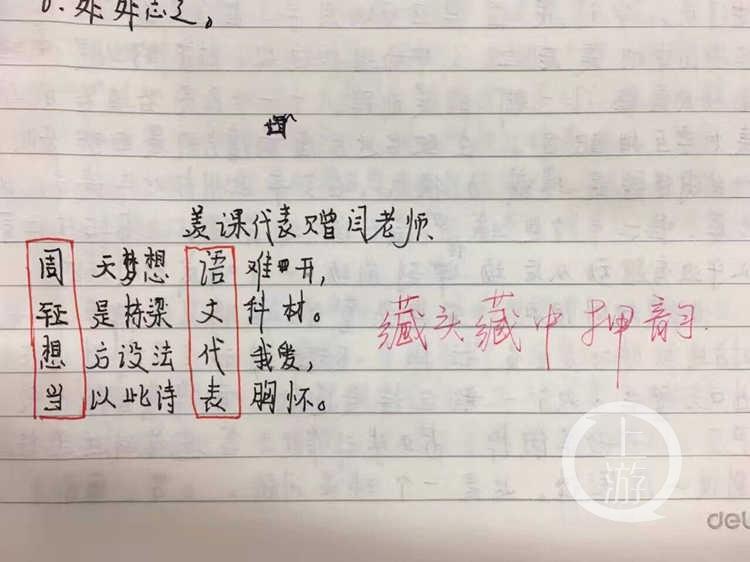 6. 处处志之。
羡课代表赠闫老师
周天梦想语难开，
钲是栋梁文科材。
想方设法代我爱，
当以此诗表胸怀。
藏头藏中押韵.
上游
del